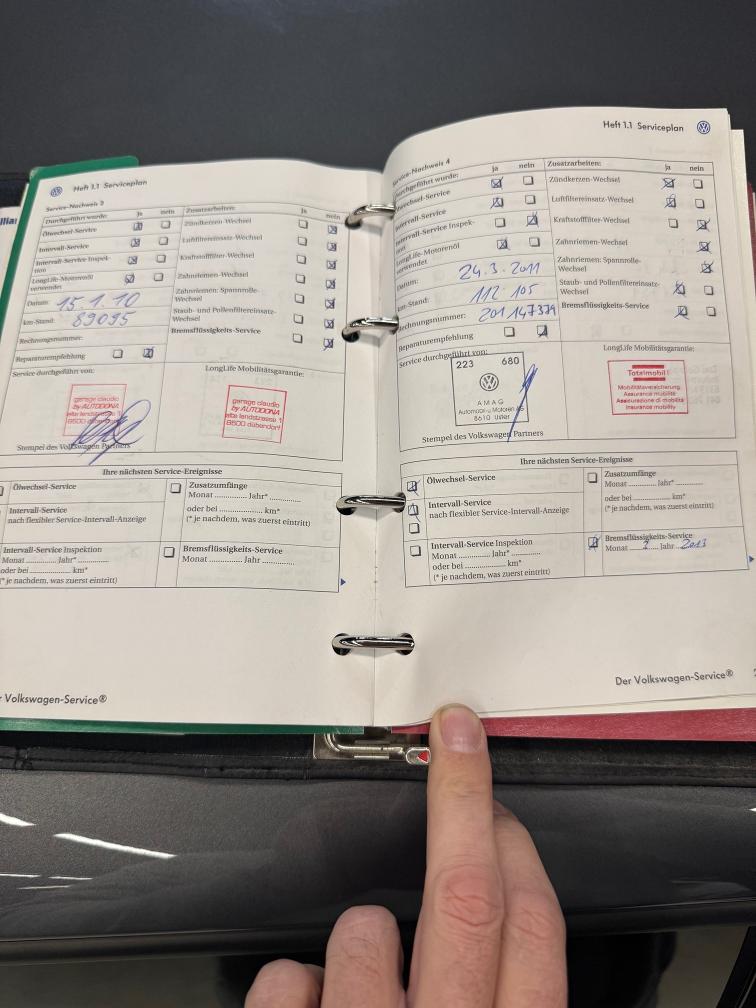 Heft 1.1 Serviceplan
Service-Nachweis 3
Durchgeführt wurde: ja nein
Ölwechsel-Service
Intervall-Service
Intervall-Service Inspek-
tion
LongLife-Motorenöl
verwendet
Datum: 15.1.10
km-Stand: 89095
Rechnungsnummer:
Reparaturempfehlung
Zusatzarbeiten: ja nein
Zündkerzen-Wechsel
Luftfiltereinsatz-Wechsel
Kraftstofffilter-Wechsel
Zahnriemen-Wechsel
Zahnriemen: Spannrolle-
Wechsel
Staub- und Pollenfiltereinsatz-
Wechsel
Bremsflüssigkeits-Service
Service durchgeführt von:
garage claudio
by AUTODONA
alte landstrasse 1
8600 dübendorf
Stempel des Volkswagen Partners
LongLife Mobilitätsgarantie:
garage claudio
by AUTODONA
alte landstrasse 1
8600 dübendorf
Ihre nächsten Service-Ereignisse
Ölwechsel-Service
Intervall-Service
nach flexibler Service-Intervall-Anzeige
Intervall-Service Inspektion
Monat .............. Jahr* ..............
oder bei .................... km*
(* je nachdem, was zuerst eintritt)
Zusatzumfänge
Monat .............. Jahr* ..............
oder bei .................... km*
(* je nachdem, was zuerst eintritt)
Bremsflüssigkeits-Service
Monat .............. Jahr ..............
Volkswagen-Service®
Heft 1.1 Serviceplan
Service-Nachweis 4
Durchgeführt wurde: ja nein
Ölwechsel-Service
Intervall-Service
Intervall-Service Inspek-
tion
LongLife-Motorenöl
verwendet
Datum: 24.3.2011
km-Stand: 112'105
Rechnungsnummer: 201147379
Reparaturempfehlung
Zusatzarbeiten: ja nein
Zündkerzen-Wechsel
Luftfiltereinsatz-Wechsel
Kraftstofffilter-Wechsel
Zahnriemen-Wechsel
Zahnriemen: Spannrolle-
Wechsel
Staub- und Pollenfiltereinsatz-
Wechsel
Bremsflüssigkeits-Service
Service durchgeführt von:
223 680
AMAG
Automobil-u. Motoren AG
8610 Uster
Stempel des Volkswagen Partners
LongLife Mobilitätsgarantie:
Totalmobil!
Mobilitätsversicherung
Assurance mobilité
Assicurazione di mobilità
Insurance mobility
Ihre nächsten Service-Ereignisse
Ölwechsel-Service
Intervall-Service
nach flexibler Service-Intervall-Anzeige
Intervall-Service Inspektion
Monat .............. Jahr* ..............
oder bei .................... km*
(* je nachdem, was zuerst eintritt)
Zusatzumfänge
Monat .............. Jahr* ..............
oder bei .................... km*
(* je nachdem, was zuerst eintritt)
Bremsflüssigkeits-Service
Monat 3 Jahr 2013
Der Volkswagen-Service®